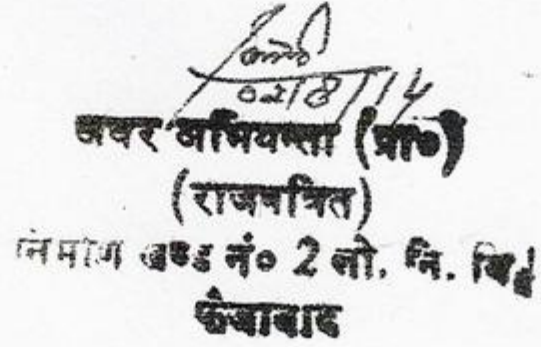 02/8/14
अवर अभियन्ता (प्रा०)
(राजपत्रित)
निर्माण खण्ड नं० 2 लो. नि. वि०
फैजाबाद